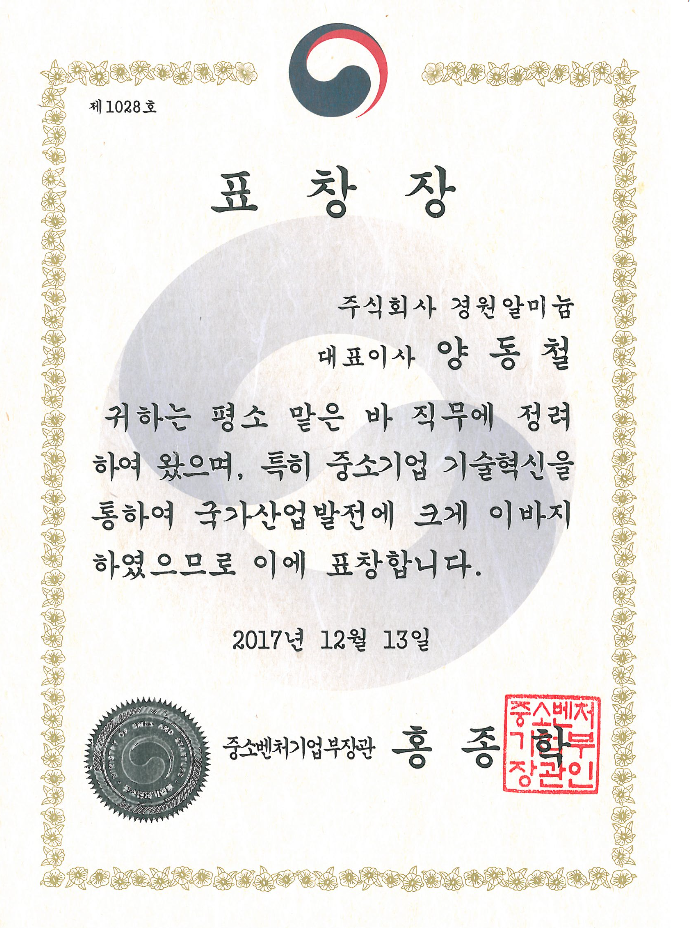 제1028호
표 창 장
주식회사 경원알미늄
대표이사 양 동 철
귀하는 평소 맡은 바 직무에 정려
하여 왔으며, 특히 중소기업 기술혁신을
통하여 국가산업발전에 크게 이바지
하였으므로 이에 표창합니다.
2017년 12월 13일
중소벤처기업부장관 홍 종 학
중소벤처
기업부
장관인
MINISTRY OF SMES AND STARTUPS
중소벤처기업부